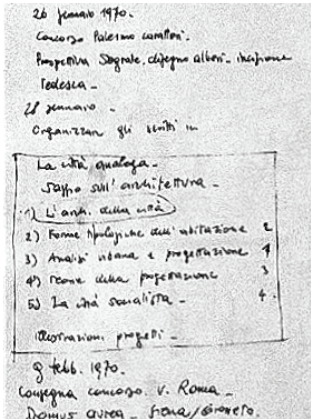 26 gennaio 1970.
Concorso Palermo caratteri.
Prospettiva Segrate, disegno alberi - incisione
tedesca -
28 gennaio -
Organizzare gli scritti in
La città analoga -
Saggio sull'architettura -
1) L'arch. della città
2) Forme tipologiche dell'abitazione 2
3) Analisi urbana e progettazione 1
4) Teorie della progettazione 3
5) La città socialista - 4.
illustrazioni progetti -
9 febb. 1970.
Consegna concorso. V. Roma -
Domus aurea - Siena /